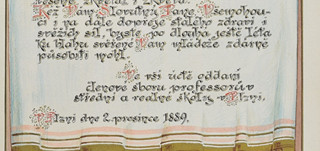 Kéž Vám, Slovutný Pane, Všemohou-
cí i na dále dopřeje stálého zdraví i
svěžích sil, byste po dlouhá ještě léta
ku blahu svěřené Vám mládeže zdárně
působiti mohl.
Ve vší úctě oddaní
členové sboru professorův
střední a reálné školy v Plzni.
V Plzni dne 2. prosince 1889.